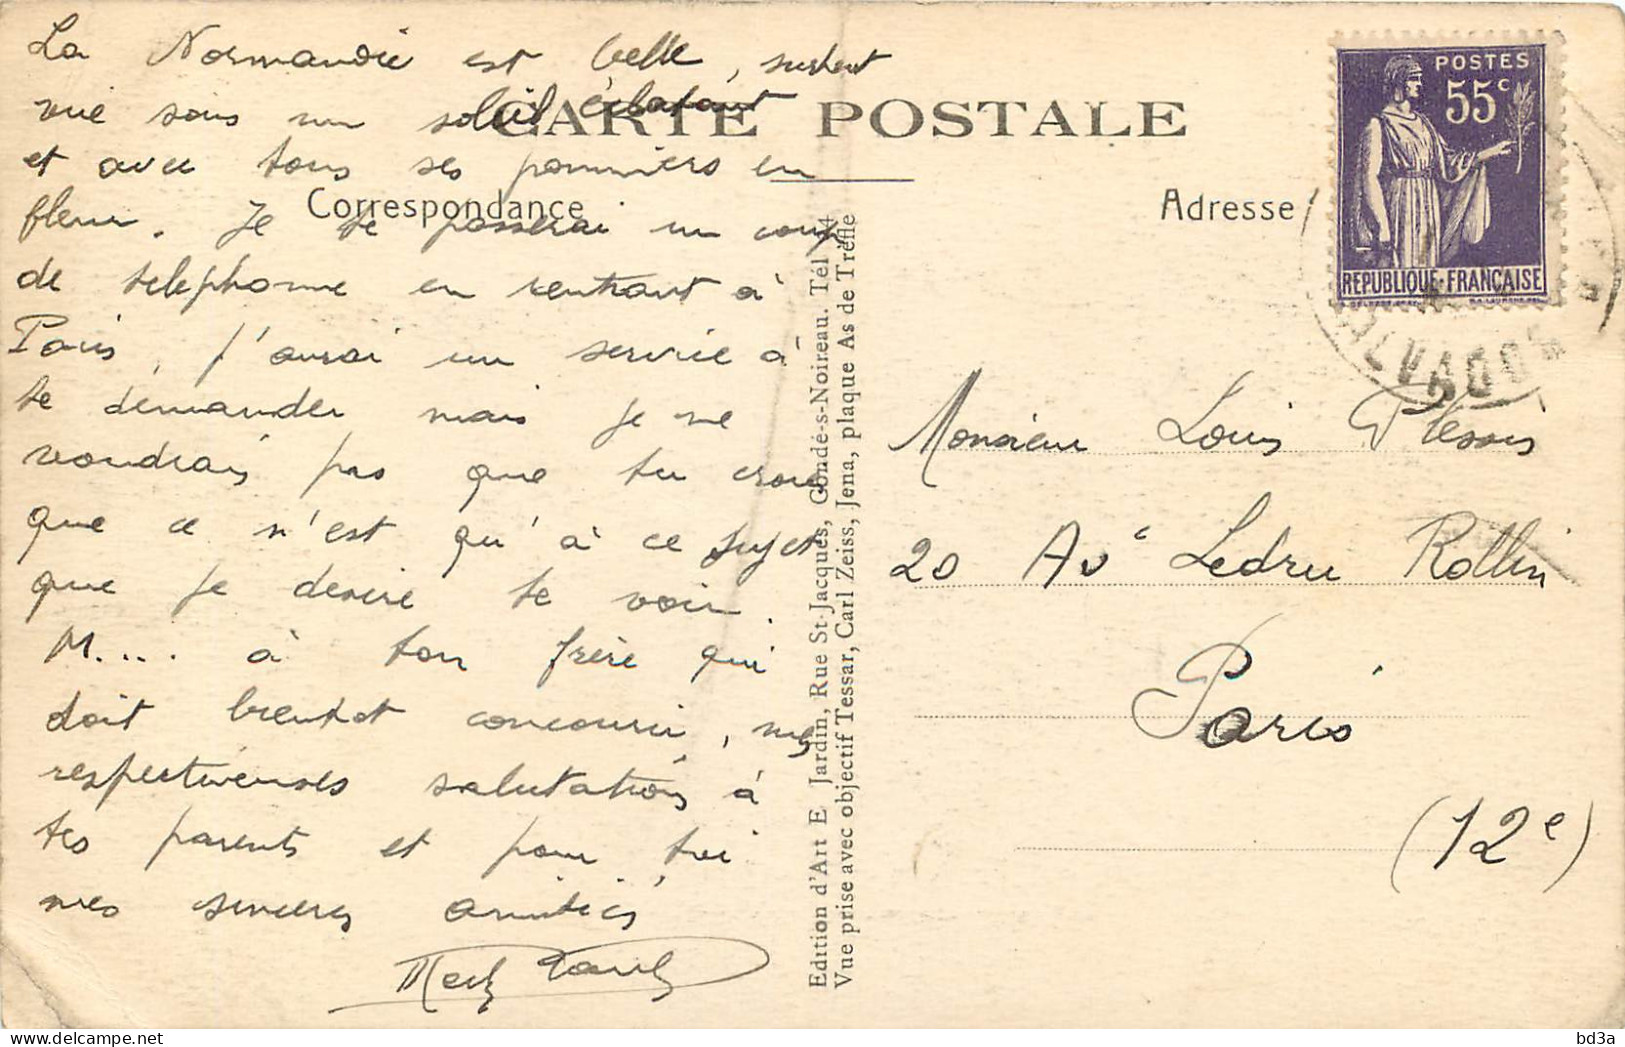 La Normandie est belle, surtout
vue sous un soleil éclatant
et avec tous ses pommiers en
fleur. Je te passerai un coup
de telephone en rentrant à
Paris, j'aurai un service à
te demander mais je ne
voudrais pas que tu crois
que ce n'est qu'à ce sujet
que je desire te voir.
M.... à ton frère qui
doit bientot concourir, mes
respectueuses salutations à
tes parents et pour toi
mes sinceres amitiés
CARTE POSTALE
Correspondance
Adresse
POSTES
55c
REPUBLIQUE FRANÇAISE
CALVADOS
Edition d'Art E Jardin, Rue St-Jacques, Condé-s-Noireau. Tél 14
Vue prise avec objectif Tessar, Carl Zeiss, Jena, plaque As de Trèfle
Monsieur Louis Plessis
20 Ave Ledru Rollin
Paris
(12e)
bd3a